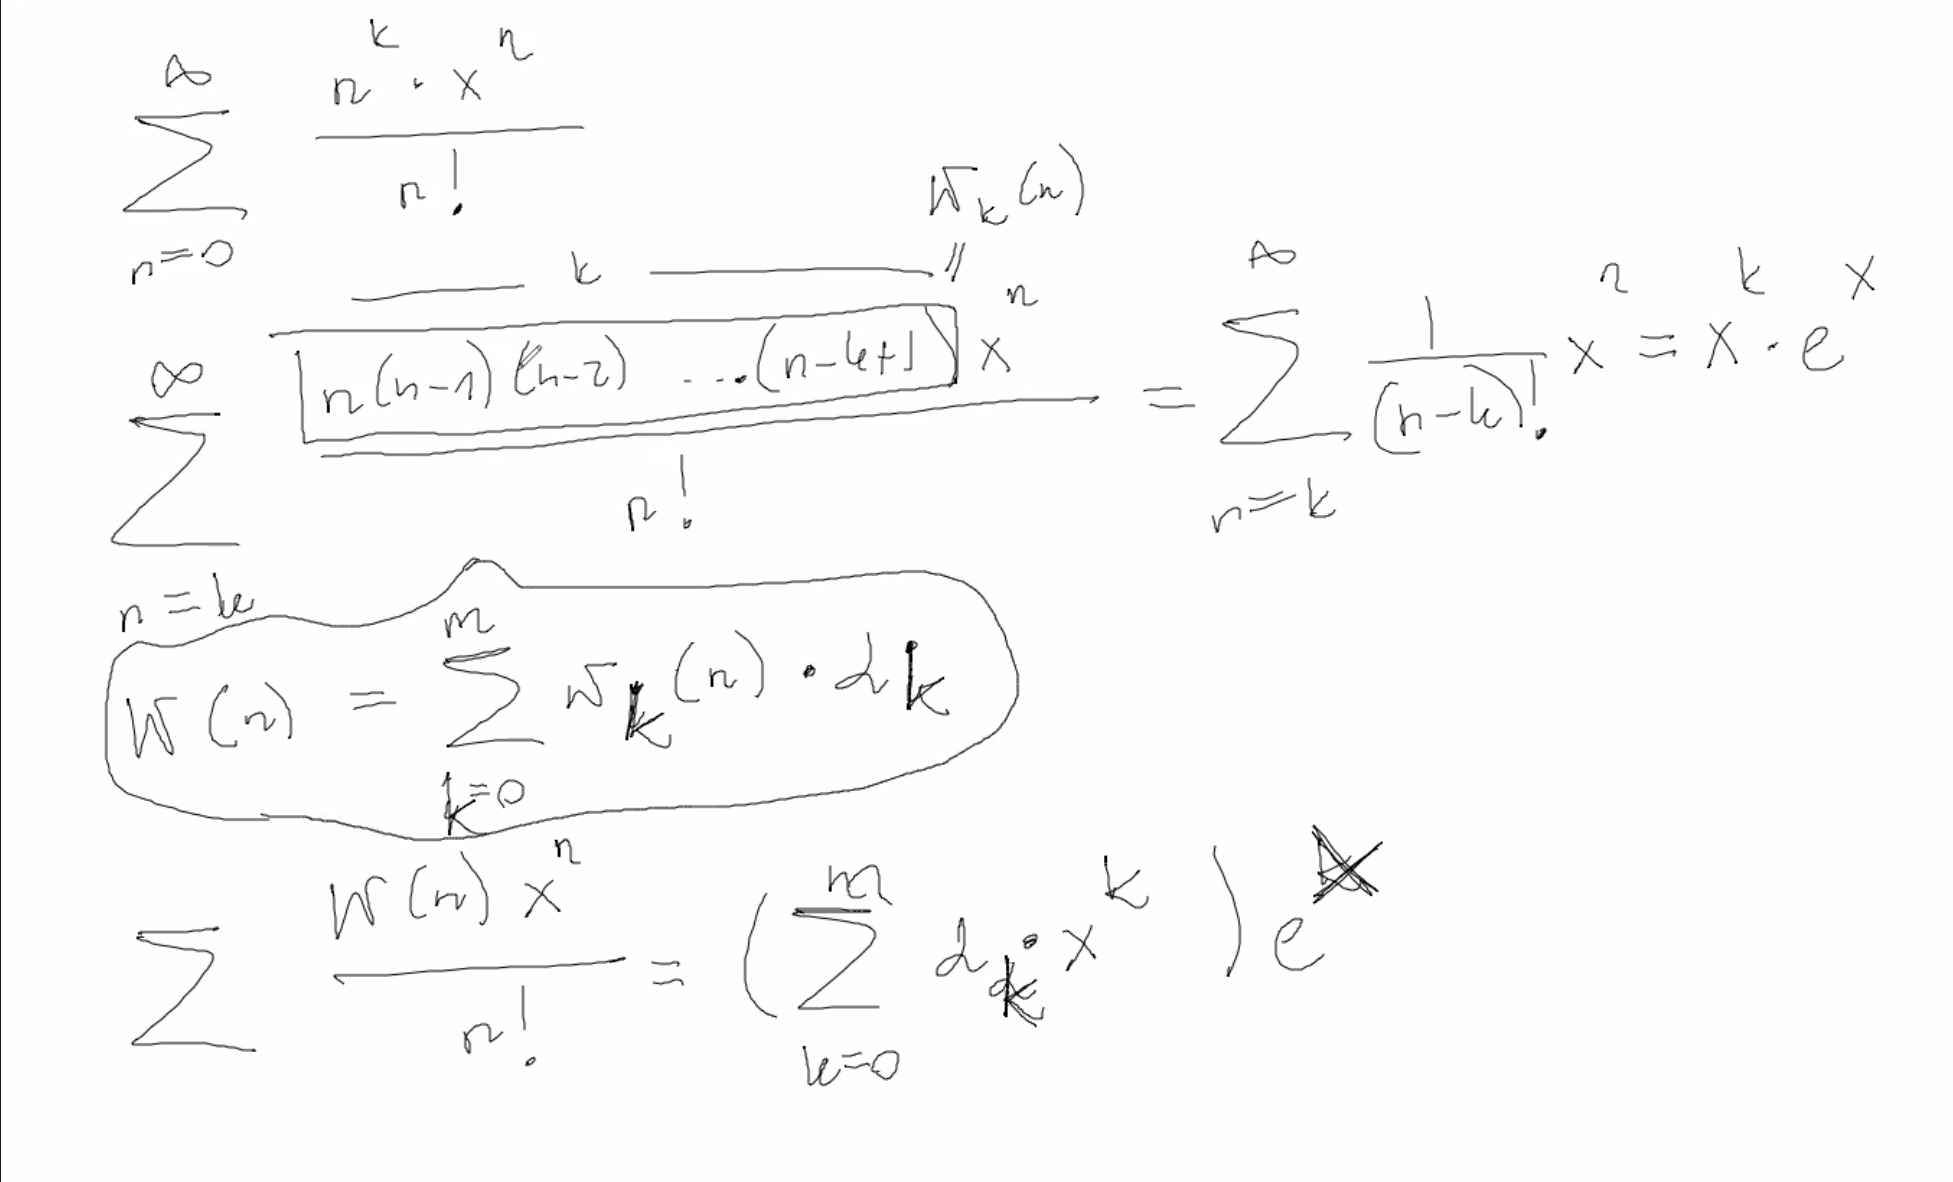 $\sum_{n=0}^{\infty} \frac{n^k \cdot x^n}{n!}$
$\sum_{n=k}^{\infty} \frac{\overbrace{\boxed{n(n-1)(n-2) \ldots (n-k+1)}}^{k} x^n}{n!} = \sum_{n=k}^{\infty} \frac{1}{(n-k)!} x^n = x^k \cdot e^x$
$W_k(n)$ =
$W(n) = \sum_{k=0}^{m} W_k(n) \cdot \alpha_k$
$\sum \frac{W(n) x^n}{n!} = \left( \sum_{k=0}^{m} \alpha_k \cdot x^k \right) e^x$